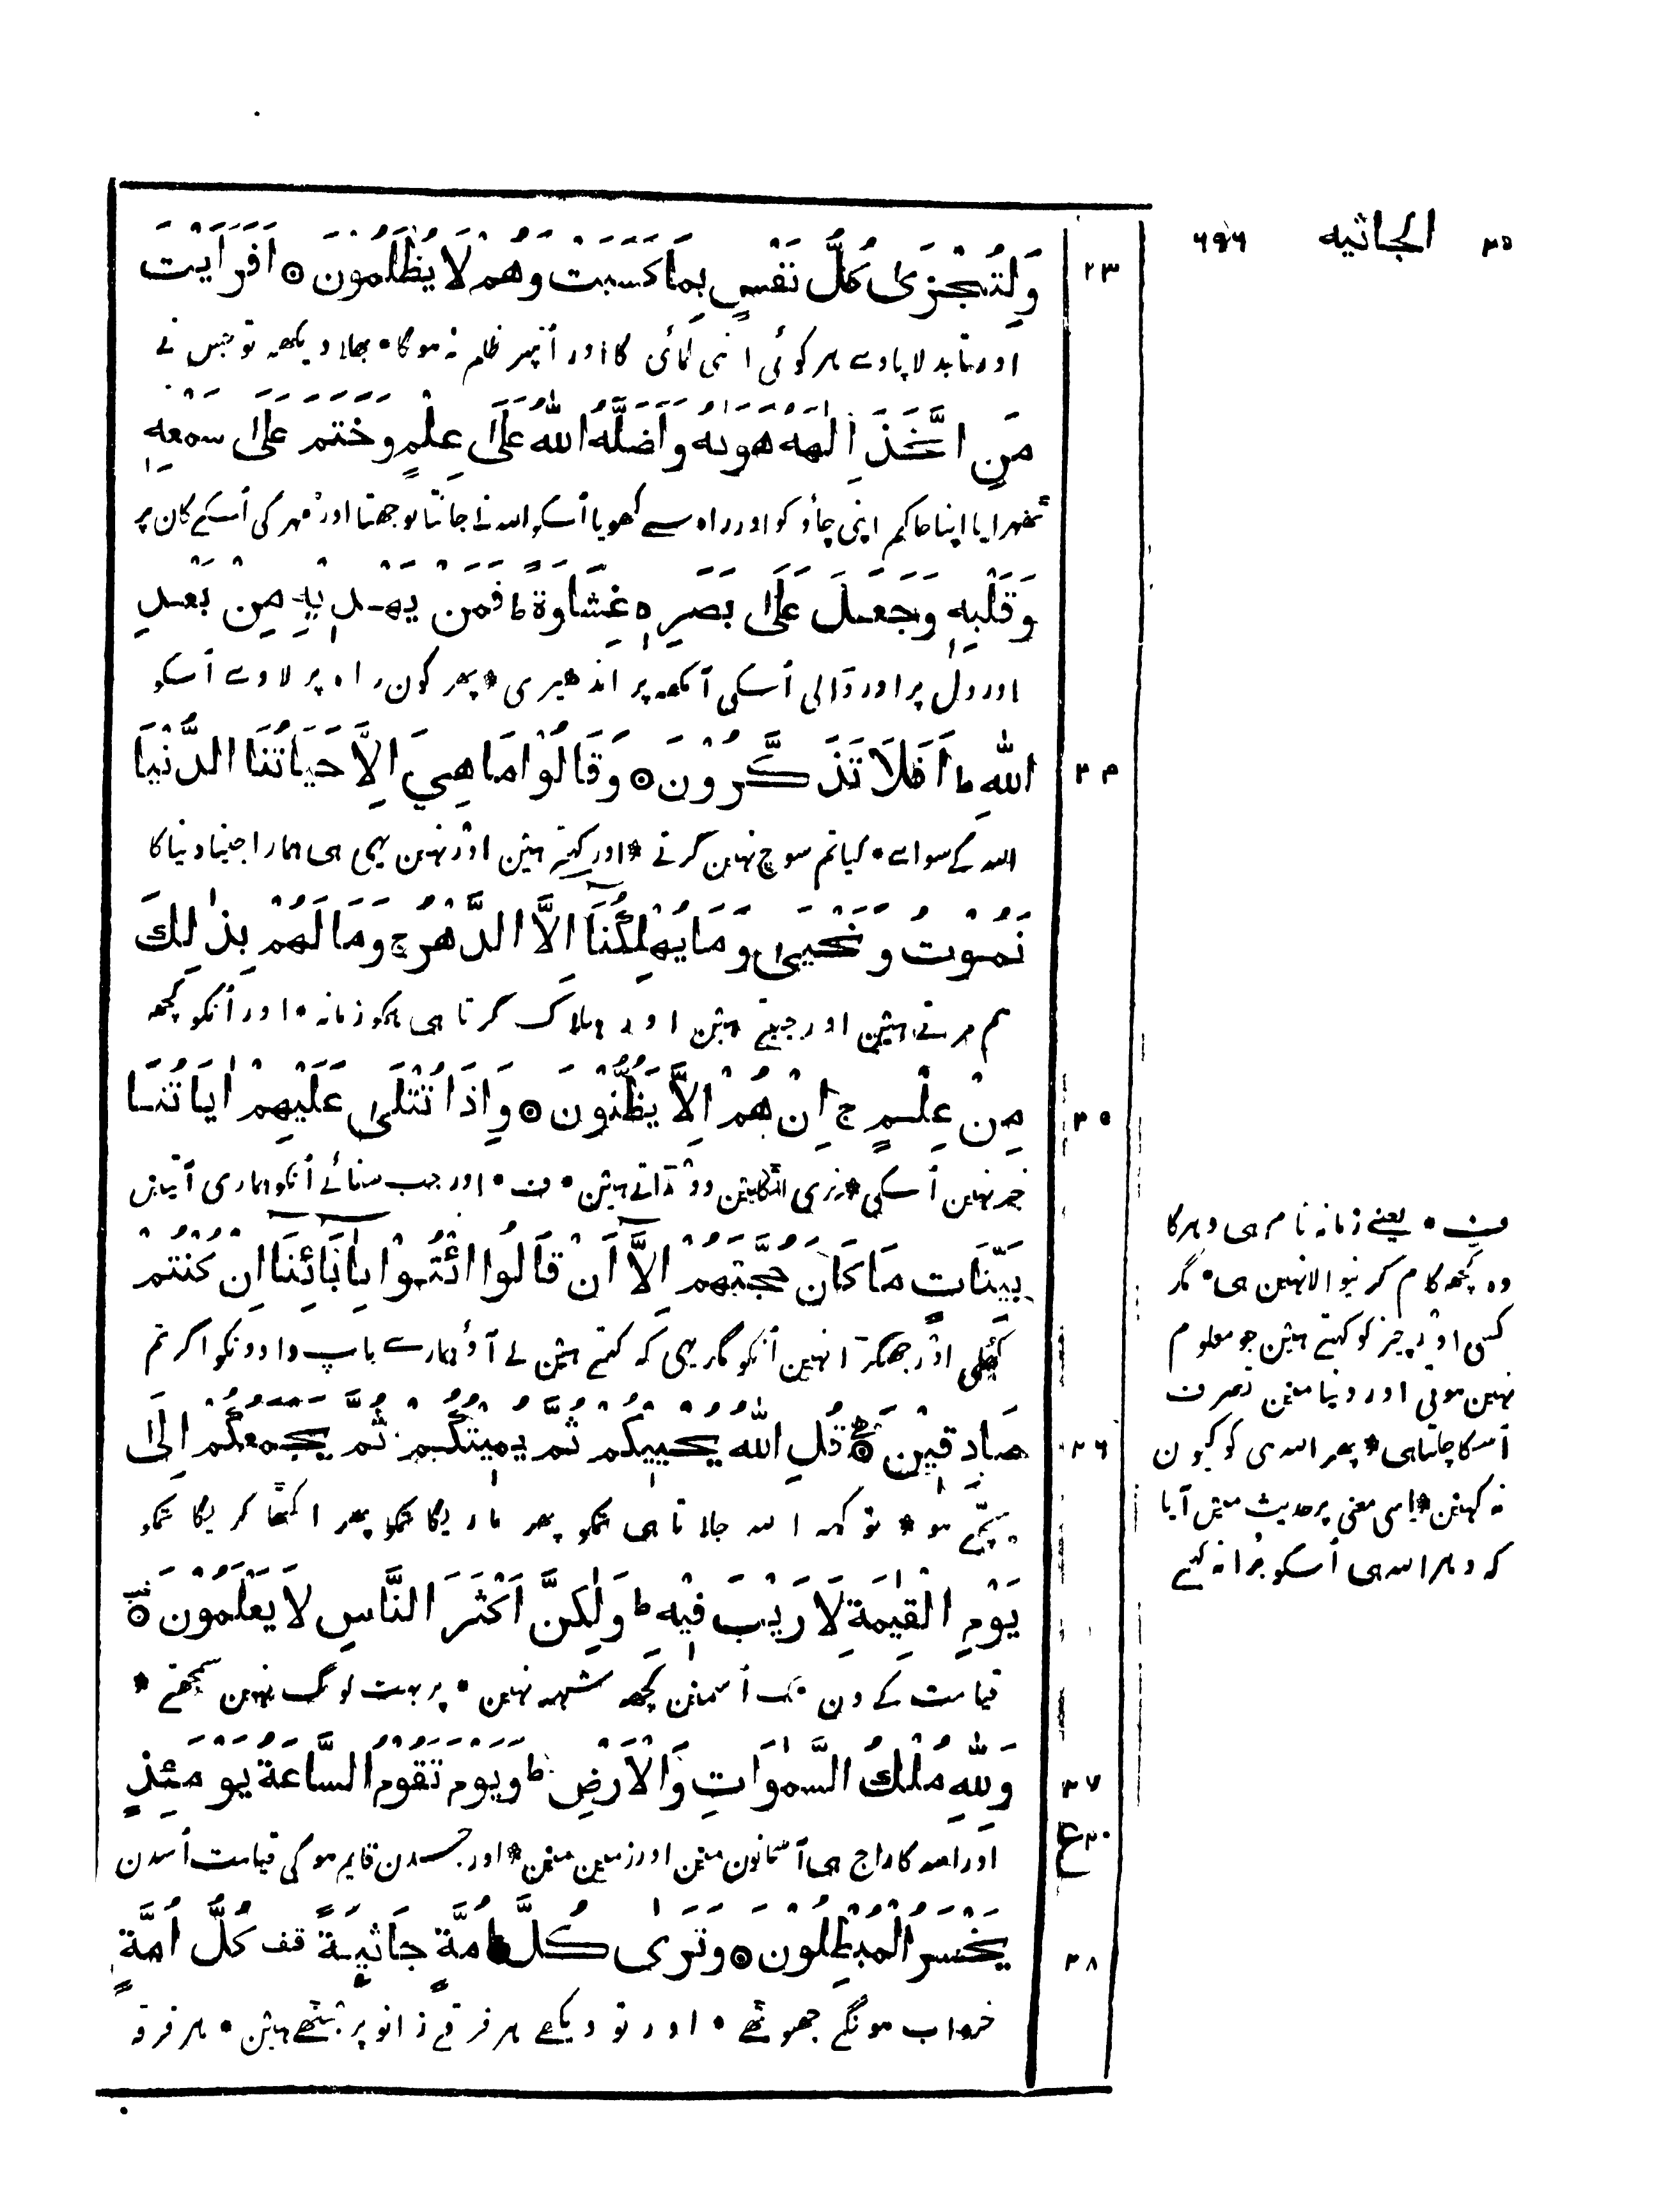 ٤٥ الجاثيه ٦٩٦
٢٣
وَلِتُجْزَىٰ كُلُّ نَفْسٍ بِمَا كَسَبَتْ وَهُمْ لَا يُظْلَمُونَ ۞ اَفَرَاَيْتَ
اور تا بدلا پاوے ہر کوئی اپنی کمائی کا اور اُنپر ظلم نہ ہوگا • بھلا دیکھہ تو جس نے
مَنِ اتَّخَذَ اِلٰهَهُ هَوٰىهُ وَاَضَلَّهُ اللّٰهُ عَلَىٰ عِلْمٍ وَخَتَمَ عَلَىٰ سَمْعِهٖ
ٹھہرایا اپنا حاکم اپنی چاؤ کو اور راہ سے کھویا اُسکو اللہ نے جانتا بوجھتا اور مُہر کی اُسکے کان پر
وَقَلْبِهٖ وَجَعَلَ عَلَىٰ بَصَرِهٖ غِشَاوَةً ط فَمَنْ يَهْدِيْهِ مِنْ بَعْدِ
اور دل پر اور ڈالی اُسکی آنکھہ پر اندھیری * پھر کون راہ پر لاوے اُسکو
اللّٰهِ ط اَفَلَا تَذَكَّرُوْنَ ۞ وَقَالُوْا مَا هِيَ اِلَّا حَيَاتُنَا الدُّنْيَا
٢٤
اللہ کے سواے • کیا تم سوچ نہین کرتے * اور کہتے ہیٛن اوٛر نہین یہی ہی ہمارا جینا دنیا کا
نَمُوْتُ وَنَحْيَىٰ وَمَا يُهْلِكُنَا اِلَّا الدَّهْرُ ج وَمَا لَهُمْ بِذٰلِكَ
ہم مرتے ہیٛن اور جیتے ہیٛن اور ہلاک کرتا ہی ہمکو زمانہ • اور اُنکو کچھہ
مِنْ عِلْمٍ ج اِنْ هُمْ اِلَّا يَظُنُّوْنَ ۞ وَاِذَا تُتْلَىٰ عَلَيْهِمْ اٰيَاتُنَا
٢٥
خبر نہین اُسکی * نری اٹکلیٛن دوڑاتے ہیٛن • ف • اور جب سنائے اُنکو ہماری آیتیں
بَيِّنَاتٍ مَا كَانَ حُجَّتَهُمْ اِلَّا اَنْ قَالُوا ائْتُوْا بِاٰبَائِنَا اِنْ كُنْتُمْ
کُھلی اوٛر جھگڑا نہین اُنکو مگر یہی کہ کہتے ہیٛن لے آؤ ہمارے باپ دادونکو اگر تم
صَادِقِيْنَ ۞ قُلِ اللّٰهُ يُحْيِيْكُمْ ثُمَّ يُمِيْتُكُمْ ثُمَّ يَجْمَعُكُمْ اِلَىٰ
٢٦
سچّے ہو * تو کہہ اللہ جلاتا ہی تمکو پھر ماریگا تمکو پھر اکٹھّا کریگا تمکو
يَوْمِ الْقِيٰمَةِ لَا رَيْبَ فِيْهِ ط وَلٰكِنَّ اَكْثَرَ النَّاسِ لَا يَعْلَمُوْنَ ۞
قیامت کے دن تک اُسمیٛن کچھہ شبہہ نہین • پر بہت لوگ نہین سمجھتے *
وَلِلّٰهِ مُلْكُ السَّمٰوَاتِ وَالْاَرْضِ ط وَيَوْمَ تَقُوْمُ السَّاعَةُ يَوْمَئِذٍ
٢٧
اور اللہ کا راج ہی آسمانون میٛن اور زمین میٛن * اور جسدن قایم ہوگی قیامت اُسدن
ع
يَخْسَرُ الْمُبْطِلُوْنَ ۞ وَتَرَىٰ كُلَّ اُمَّةٍ جَاثِيَةً قف كُلُّ اُمَّةٍ
٢٨
خراب ہونگے جھوٹھے • اور تو دیکھے ہر فرقے زانو پر بیٹھے ہیٛن • ہر فرقہ
ف • یعنے زمانہ نام ہی دہر کا
وہ کچھہ کام کرنیوالا نہین ہی • مگر
کسی اوٛر چیز کو کہتے ہیٛن جو معلوم
نہین ہوتی اور دنیا میٛن تصرف
اُسکا چلتا ہی * پھر اللہ ہی کو کیون
نہ کہیٛن * اِسی معنی پر حدیث میٛں آیا
کہ دہر اللہ ہی اُسکو بُرا نہ کہیے